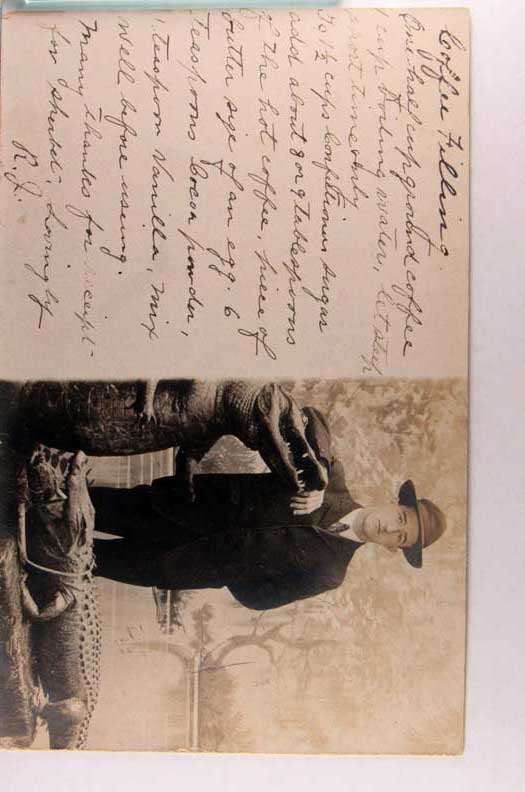 Coffee Filling.
One half cup ground coffee
1 cup boiling water, let step
short time only
To 1½ cups Confectioners Sugar
add about 8 or 9 tablespoons
of the hot coffee, piece of
butter size of an egg. 6
teaspoons Cocoa powder,
1 teaspoon Vanilla, Mix
well before using.
Many thanks for receipt-
for sherbet. Lovingly
R. J.